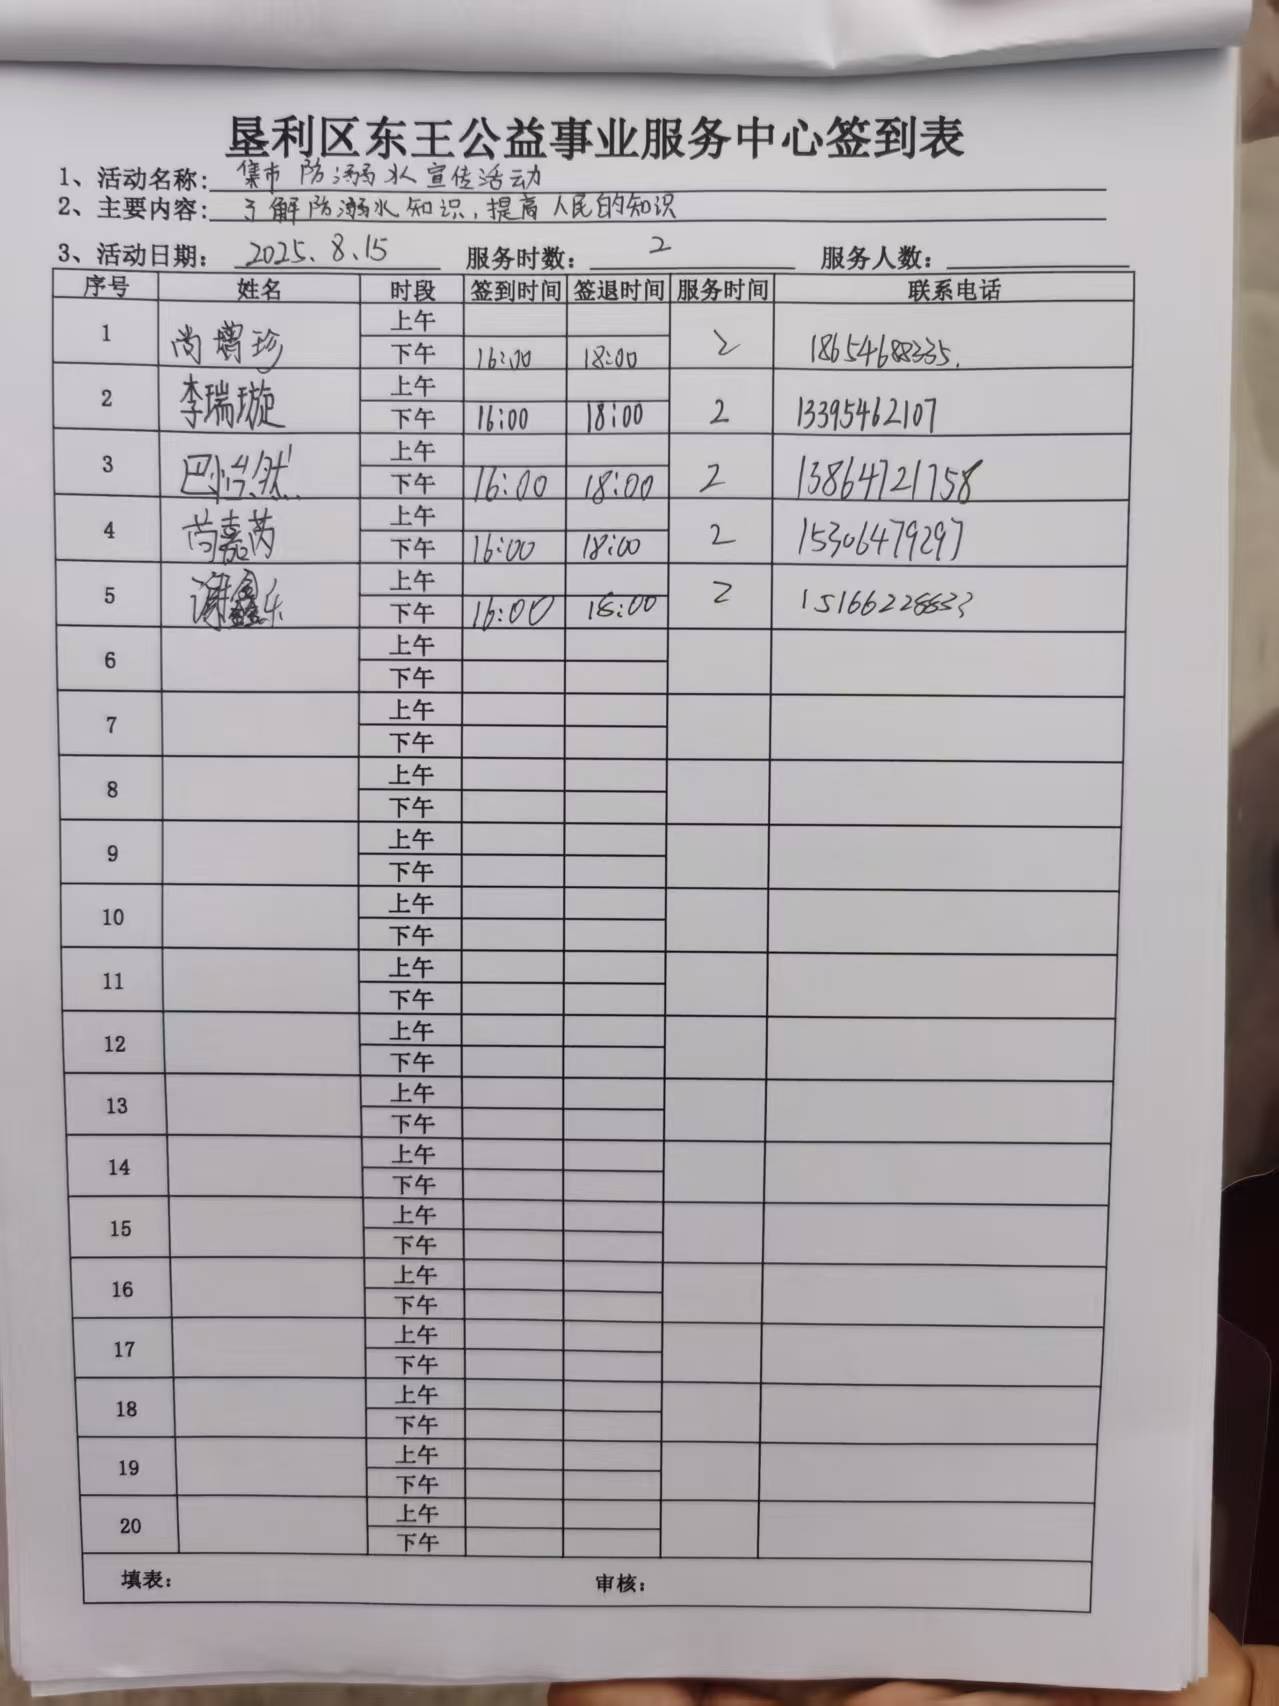 垦利区东王公益事业服务中心签到表
1、活动名称: 集市防溺水宣传活动
2、主要内容: 了解防溺水知识,提高人民的知识
3、活动日期: 2025.8.15 服务时数: 2 服务人数:
序号 姓名 时段 签到时间 签退时间 服务时间 联系电话
1 尚增珍 上午 2 18654688335.
下午 16:00 18:00
2 李瑞璇 上午 2 13395462107
下午 16:00 18:00
3 巴怡然 上午 2 13864721758
下午 16:00 18:00
4 尚嘉芮 上午 2 15306479297
下午 16:00 18:00
5 上午 2
下午 16:00 18:00
6 上午
下午
7 上午
下午
8 上午
下午
9 上午
下午
10 上午
下午
11 上午
下午
12 上午
下午
13 上午
下午
14 上午
下午
15 上午
下午
16 上午
下午
17 上午
下午
18 上午
下午
19 上午
下午
20 上午
下午
填表: 审核: